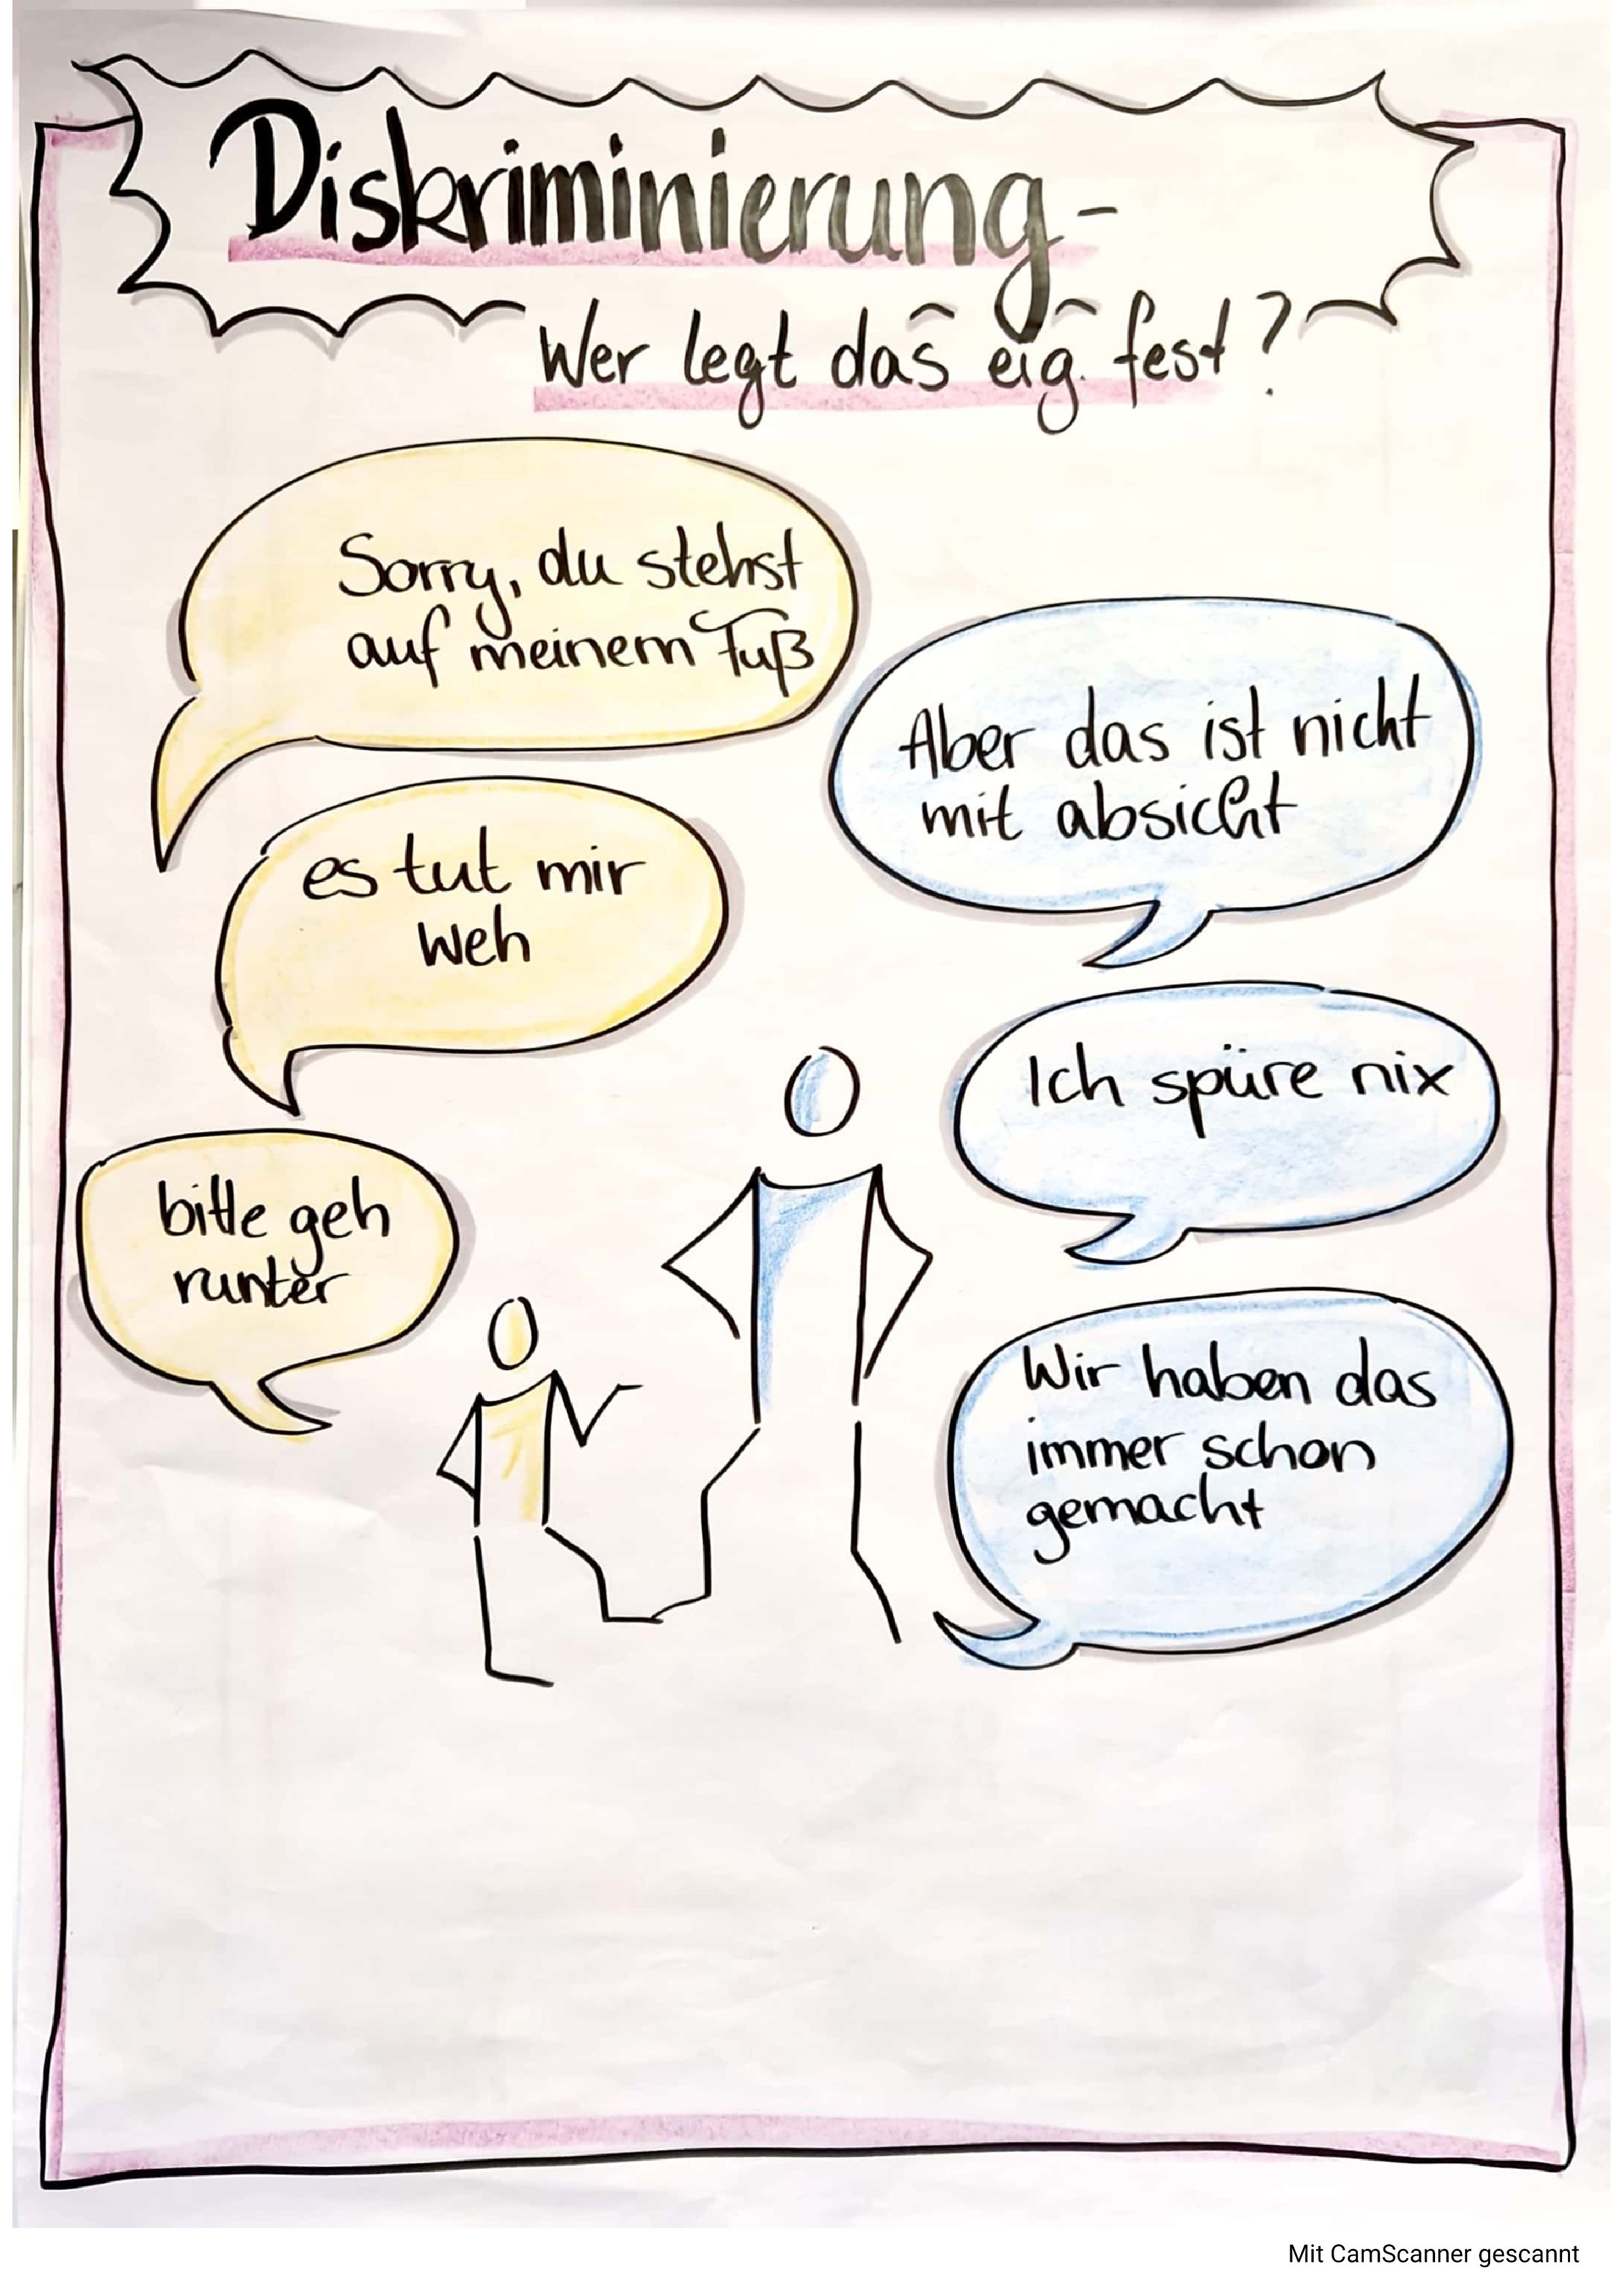 Diskriminierung-
Wer legt das eig. fest?
Sorry, du stehst
auf meinem Fuß
Aber das ist nicht
mit absicht
es tut mir
weh
Ich spüre nix
bitte geh
runter
Wir haben das
immer schon
gemacht
Mit CamScanner gescannt